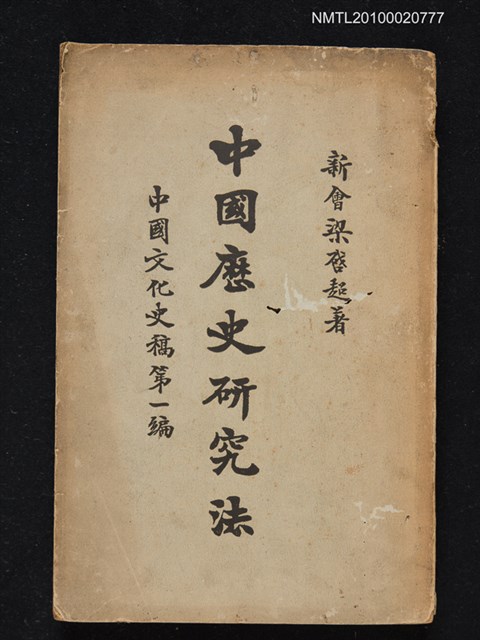 NMTL20100020777
新會梁啓超著
中國歷史研究法
中國文化史稿第一編